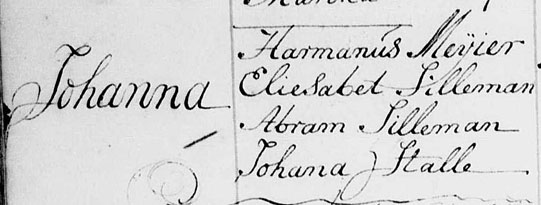 Johanna
Harmanus Meÿier
Eliesabet Silleman
Abram Silleman
Johana Stalle